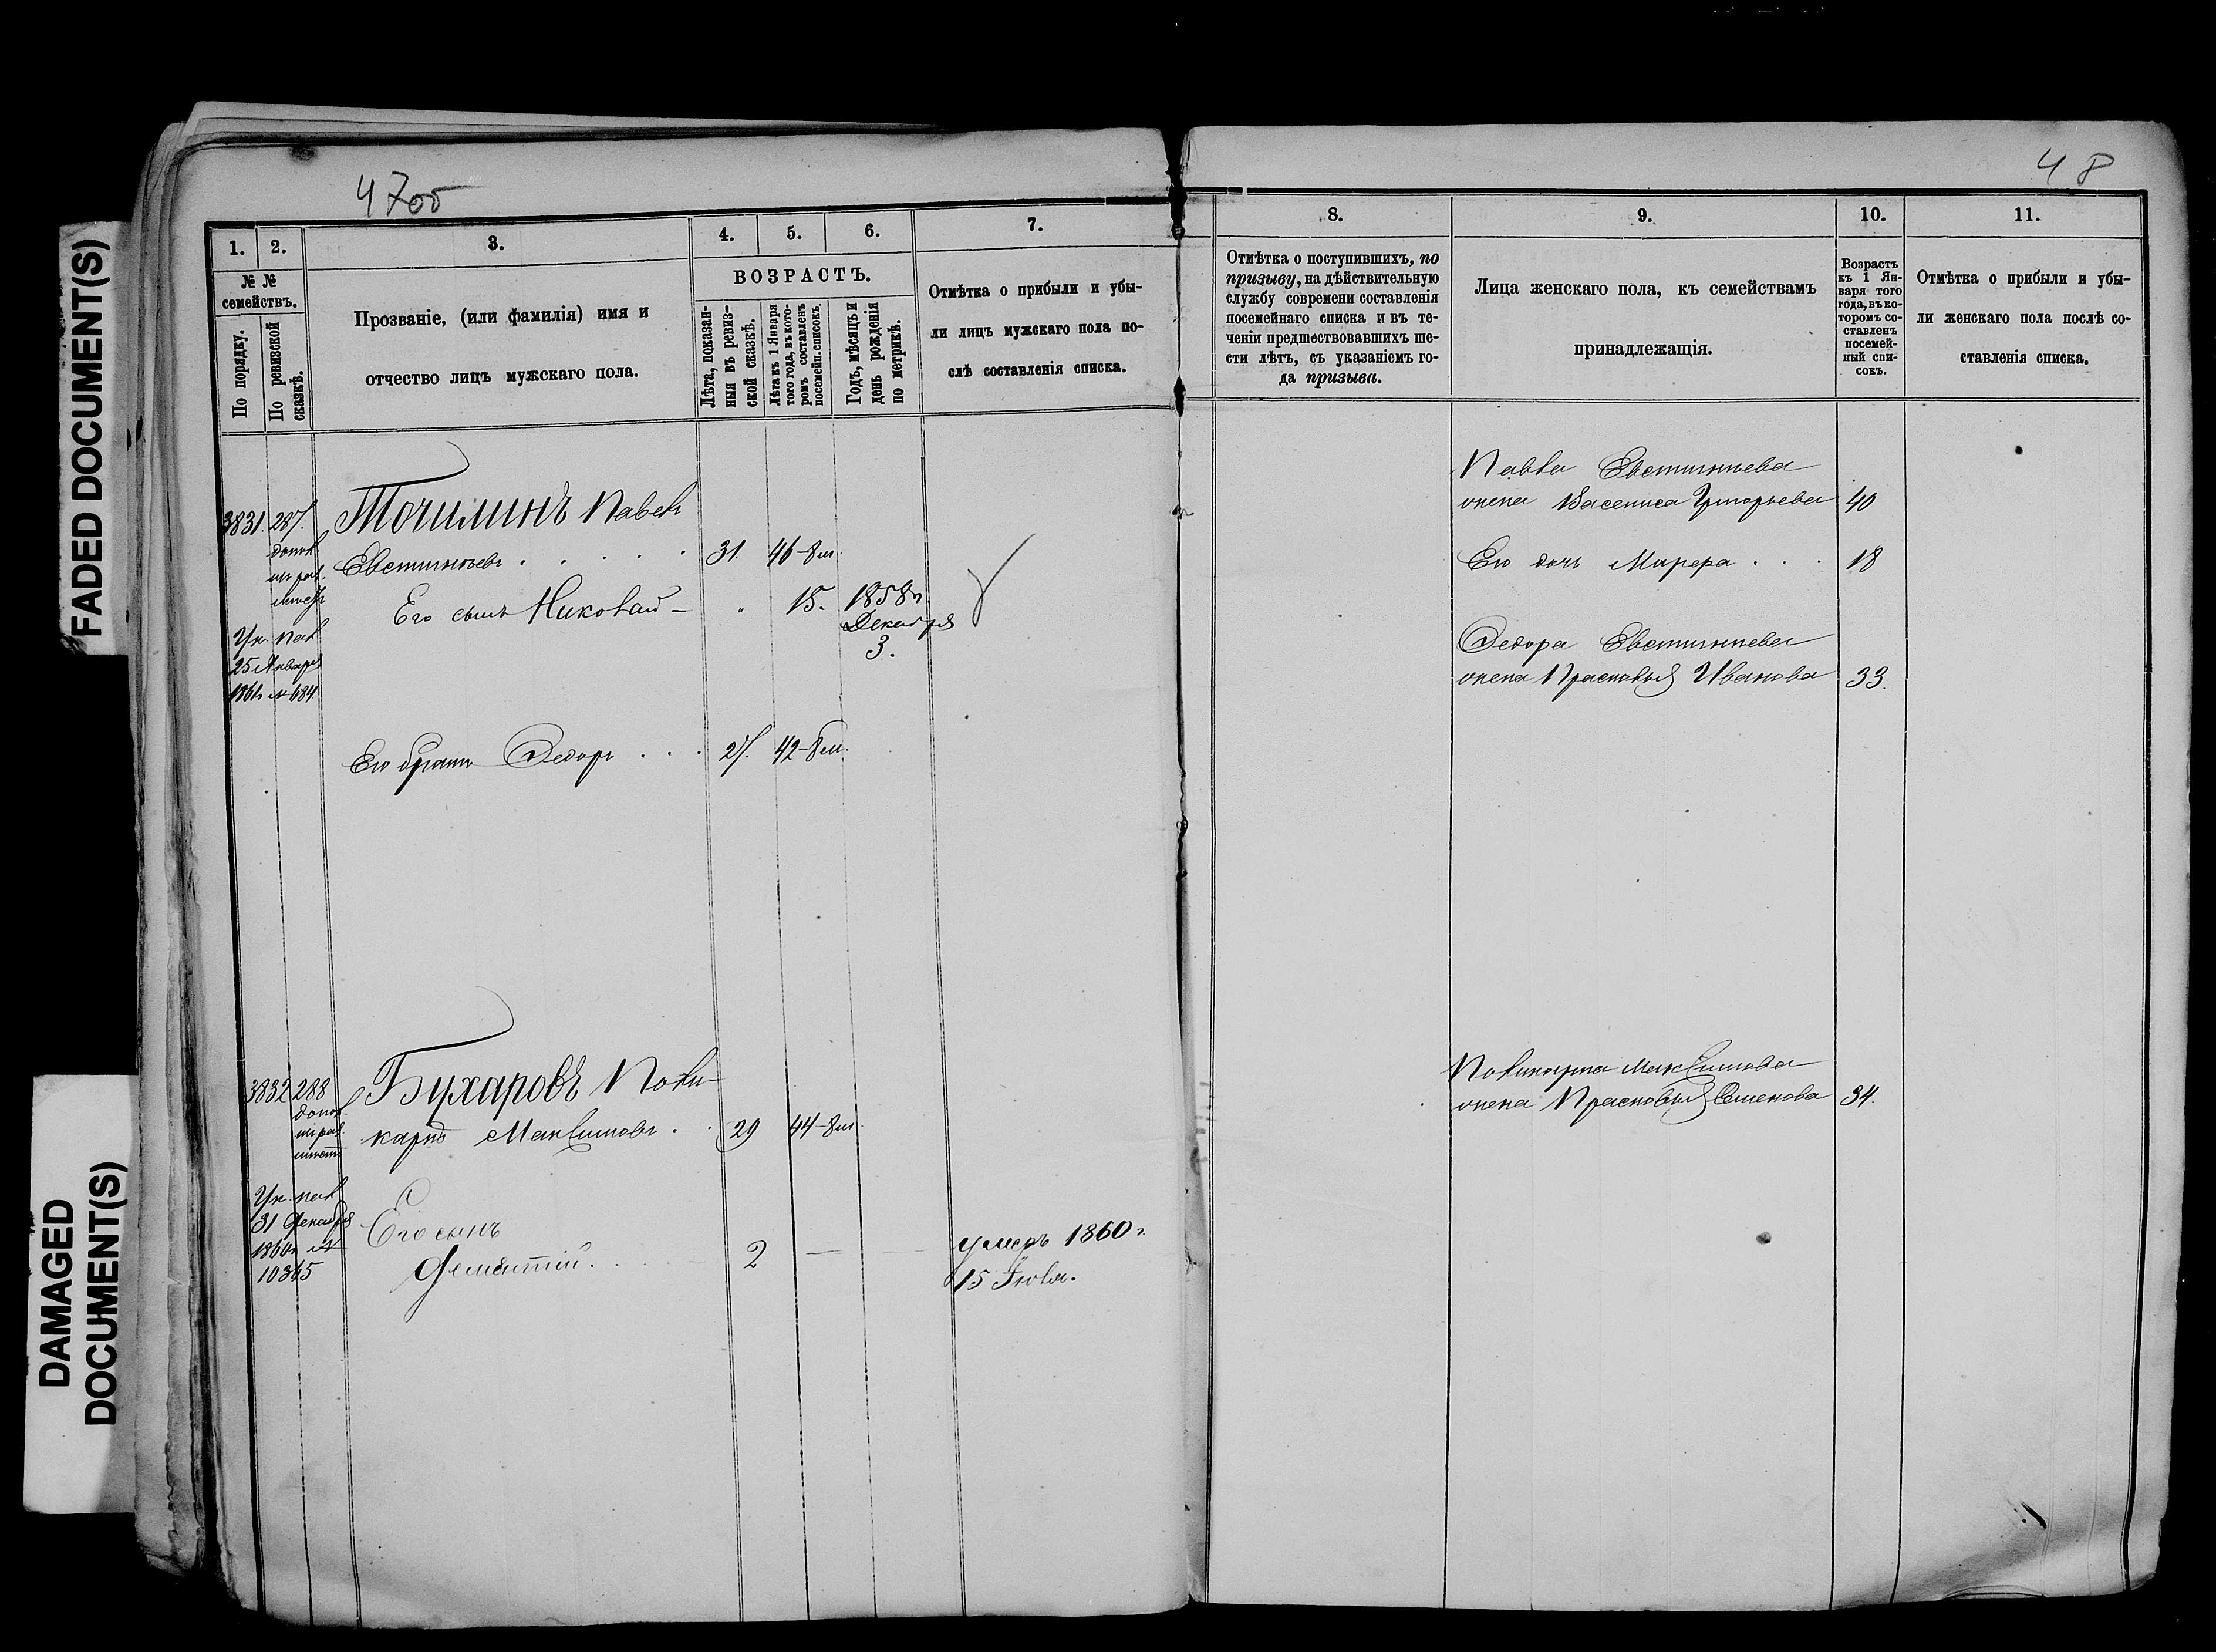 FADED DOCUMENT(S)
DAMAGED
DOCUMENT(S)
47об
48
1.
2.
3.
4.
5.
6.
7.
8.
9.
10.
11.
№ №
семействъ.
По порядку.
По ревизской
сказкѣ.
Прозваніе, (или фамилія) имя и
отчество лицъ мужскаго пола.
ВОЗРАСТЪ.
Лѣта, показан-
ныя въ ревиз-
ской сказкѣ.
Лѣта къ 1 Января
того года, въ кото-
ромъ составленъ
посемейн. списокъ.
Годъ, мѣсяцъ и
день рожденія
по метрикѣ.
Отмѣтка о прибыли и убы-
ли лицъ мужскаго пола по-
слѣ составленія списка.
Отмѣтка о поступившихъ, по
призыву, на дѣйствительную
службу современи составленія
посемейнаго списка и въ те-
ченіи предшествовавшихъ ше-
сти лѣтъ, съ указаніемъ го-
да призыва.
Лица женскаго пола, къ семействамъ
принадлежащія.
Возрастъ
къ 1 Ян-
варя того
года, въ ко-
торомъ со-
ставленъ
посемей-
ный спи-
сокъ.
Отмѣтка о прибыли и убы-
ли женскаго пола послѣ со-
ставленія списка.
3831. 287. Точилинъ Павелъ
Евстигнѣевъ . . . . 31. 46
Его сынъ Николай — " 15. 1858 г.
Декабря
3.
Ук. пал.
25 Января
1861 г. № 684
Его братъ Федоръ . . . 27. 42
Павла Евстигнѣева
жена Василиса Григорьева 40
Его дочь Марфа . . . 18
Федора Евстигнѣева
жена Прасковья Иванова 33.
3832 288 Бухаровъ Поли-
карпъ Максимовъ . . 29 44
Ук. пал.
31 Декабря
1860 г. №
10365
Его сынъ
Дементій. . . . . 2 — — умеръ 1860 г.
15 Іюля.
Поликарпа Максимова
жена Прасковья Семенова 34.